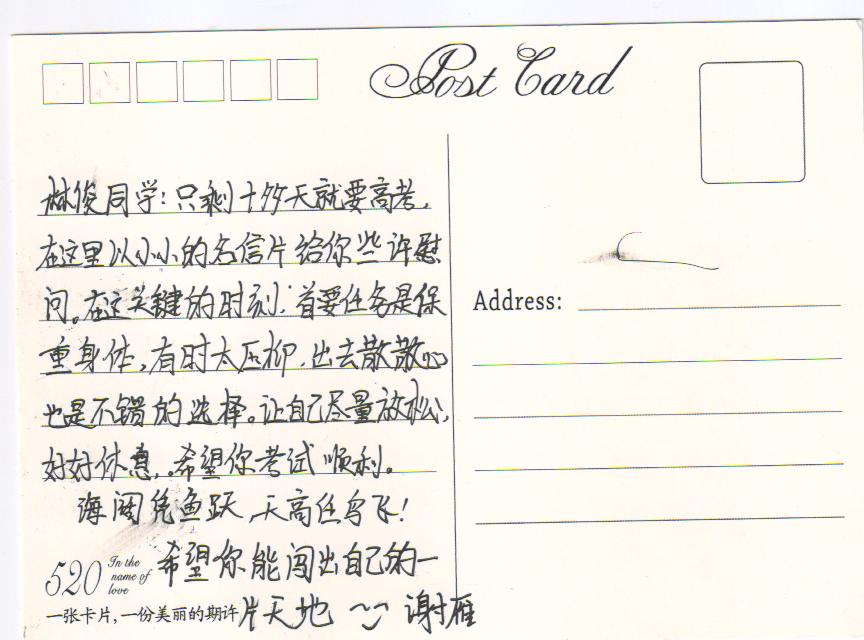 Post Card
林俊同学:只剩十多天就要高考,
在这里以小小的名信片给你些许慰
问。在这关键的时刻,首要任务是保
重身体,有时太压抑,出去散散心
也是不错的选择。让自己尽量放松,
好好休息,希望你考试顺利。
海阔凭鱼跃,天高任鸟飞!
希望你能闯出自己的一
片天地 谢雁
520 In the
name of
love
一张卡片,一份美丽的期许
Address: